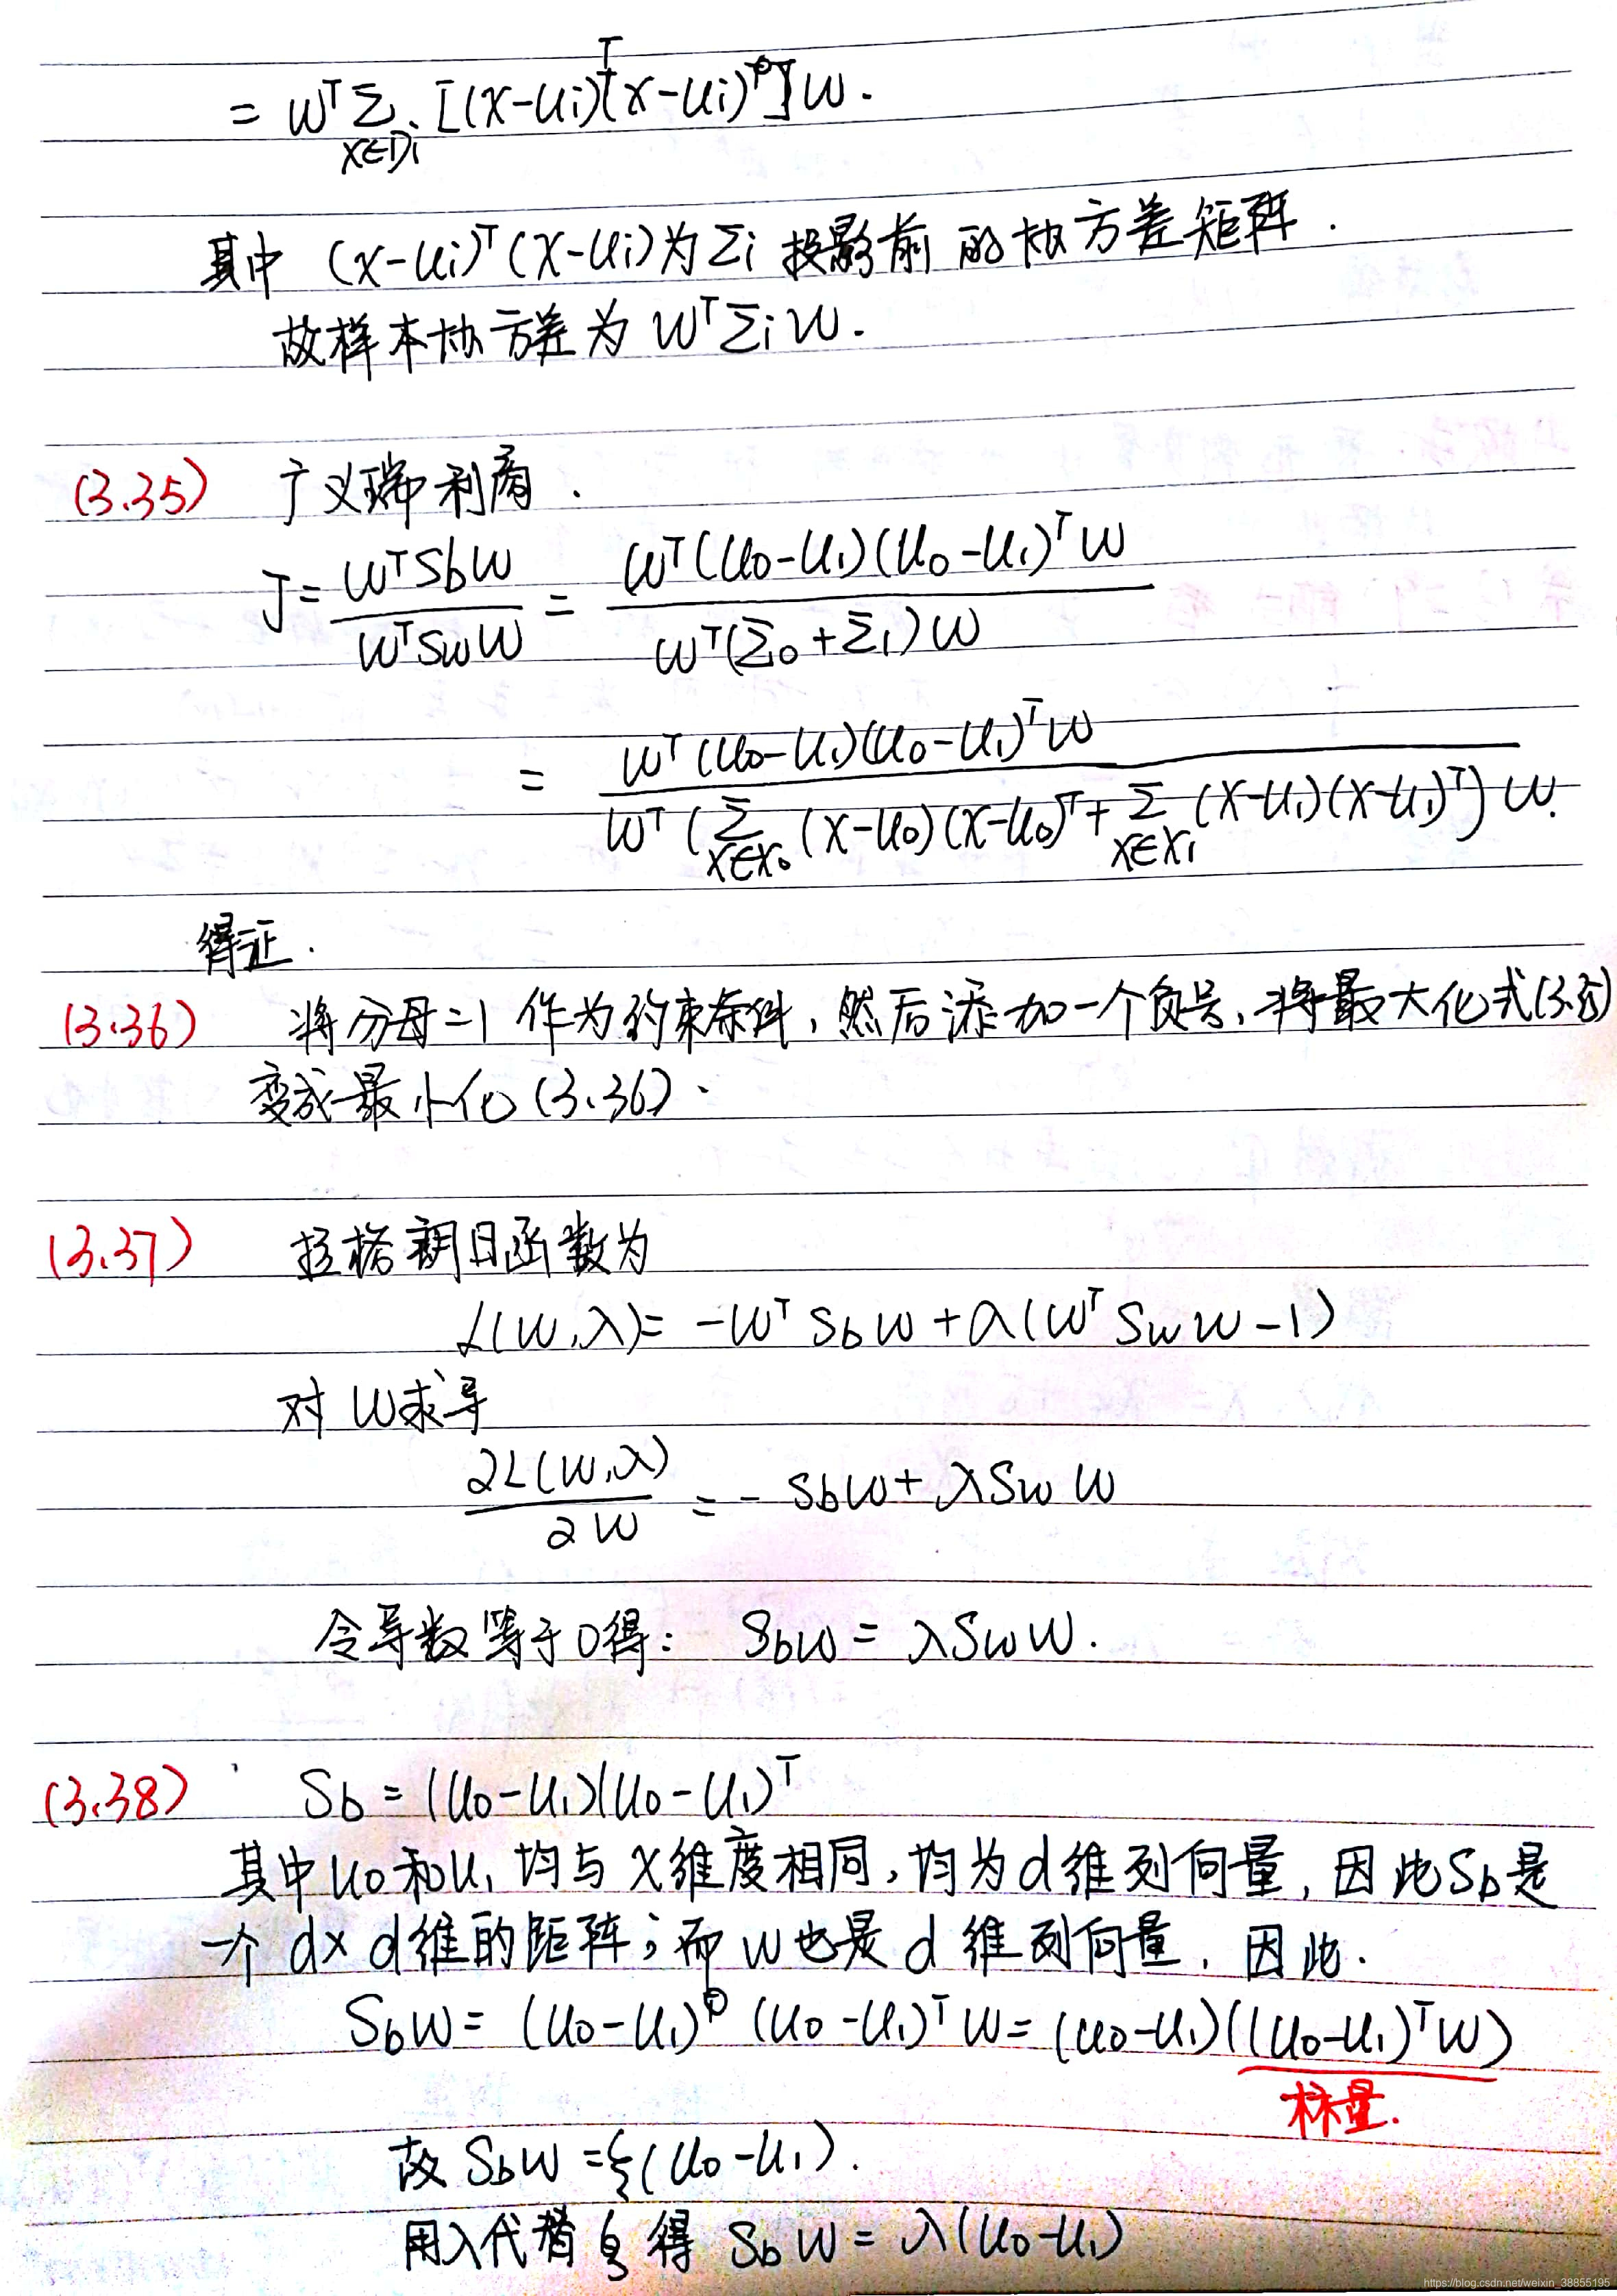 = W^T Σ_{x∈Di} [(x-ui)^T(x-ui)^T]W.
其中 (x-ui)^T(x-ui)为Σi 投影前的协方差矩阵.
故样本协方差为 W^TΣiW.
(3.35) 广义瑞利商.
J = \frac{W^T Sb W}{W^T Sw W} = \frac{W^T(u0-u1)(u0-u1)^T W}{W^T(Σ0+Σ1)W}
= \frac{W^T(u0-u1)(u0-u1)^T W}{W^T(Σ_{x∈X0}(x-u0)(x-u0)^T+Σ_{x∈X1}(x-u1)(x-u1)^T)W.}
得证.
(3.36) 将分母=1 作为约束条件,然后添加一个负号,将最大化式(3.35)
变成最小化(3.36).
(3.37) 拉格朗日函数为
L(W,λ)= -W^T Sb W+λ(W^T Sw W-1)
对 W求导
\frac{∂L(W,λ)}{∂W} = - SbW+λSw W
令导数等于0得: SbW = λSwW.
(3.38) Sb = (u0-u1)(u0-u1)^T
其中u0和u1 均与 x维度相同,均为d维列向量,因此Sb是
一个 d×d维的距阵;而 w也是 d 维列向量,因此.
SbW = (u0-u1) (u0-u1)^T W = (u0-u1)((u0-u1)^T W)
标量.
故 SbW =ξ(u0-u1).
用λ代替ξ得 SbW = λ(u0-u1)
https://blog.csdn.net/weixin_38855195